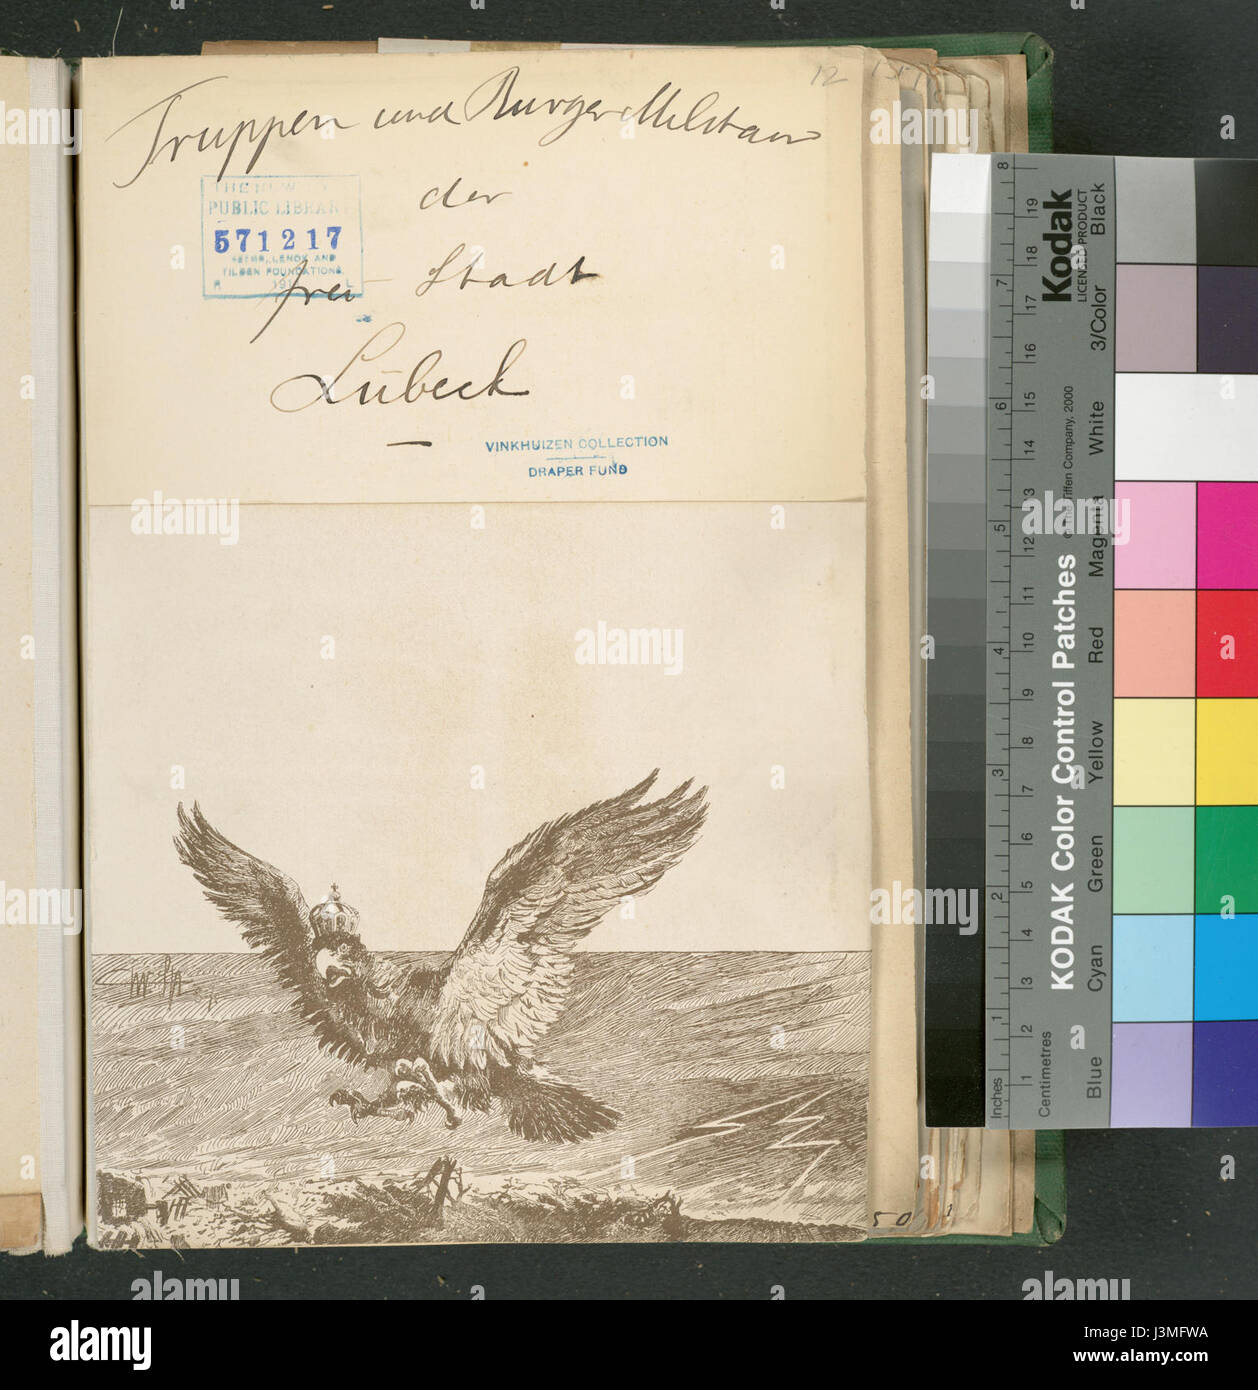 12
Truppen und Burger Militair
der
THE NEW
PUBLIC LIBRARY
571217
ASTOR, LENOX AND
TILDEN FOUNDATIONS
frei - Stadt
Lübeck
VINKHUIZEN COLLECTION
DRAPER FUND
50
Kodak
LICENSED PRODUCT
KODAK Color Control Patches
© The Tiffen Company, 2000
Black
3/Color
White
Magenta
Red
Yellow
Green
Cyan
Blue
Inches
1 2 3 4 5 6 7 8
Centimetres
1 2 3 4 5 6 7 8 9 10 11 12 13 14 15 16 17 18 19
alamy
alamy stock photo
J3MFWA
www.alamy.com